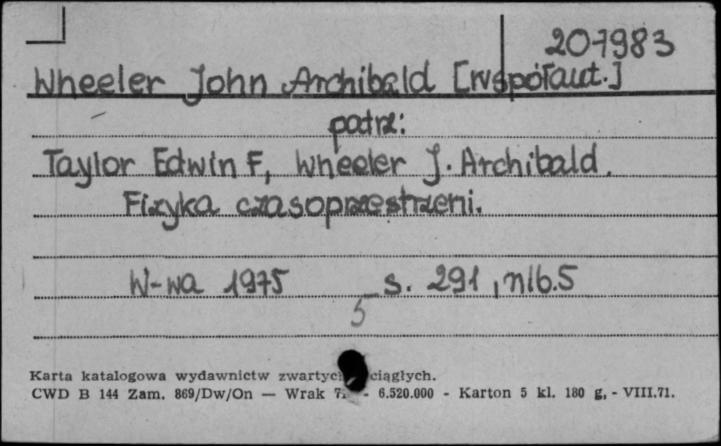 207983
Wheeler John Archibald [współaut.]
patrz:
Taylor Edwin F, Wheeler J. Archibald.
Fizyka czasoprzestrzeni.
W-wa 1975 s. 291, nlb. 5
5
Karta katalogowa wydawnictw ciągłych.
CWD B 144 Zam. 869/Dw/On — Wrak - 6.520.000 - Karton 5 kl. 180 g, - VIII.71.